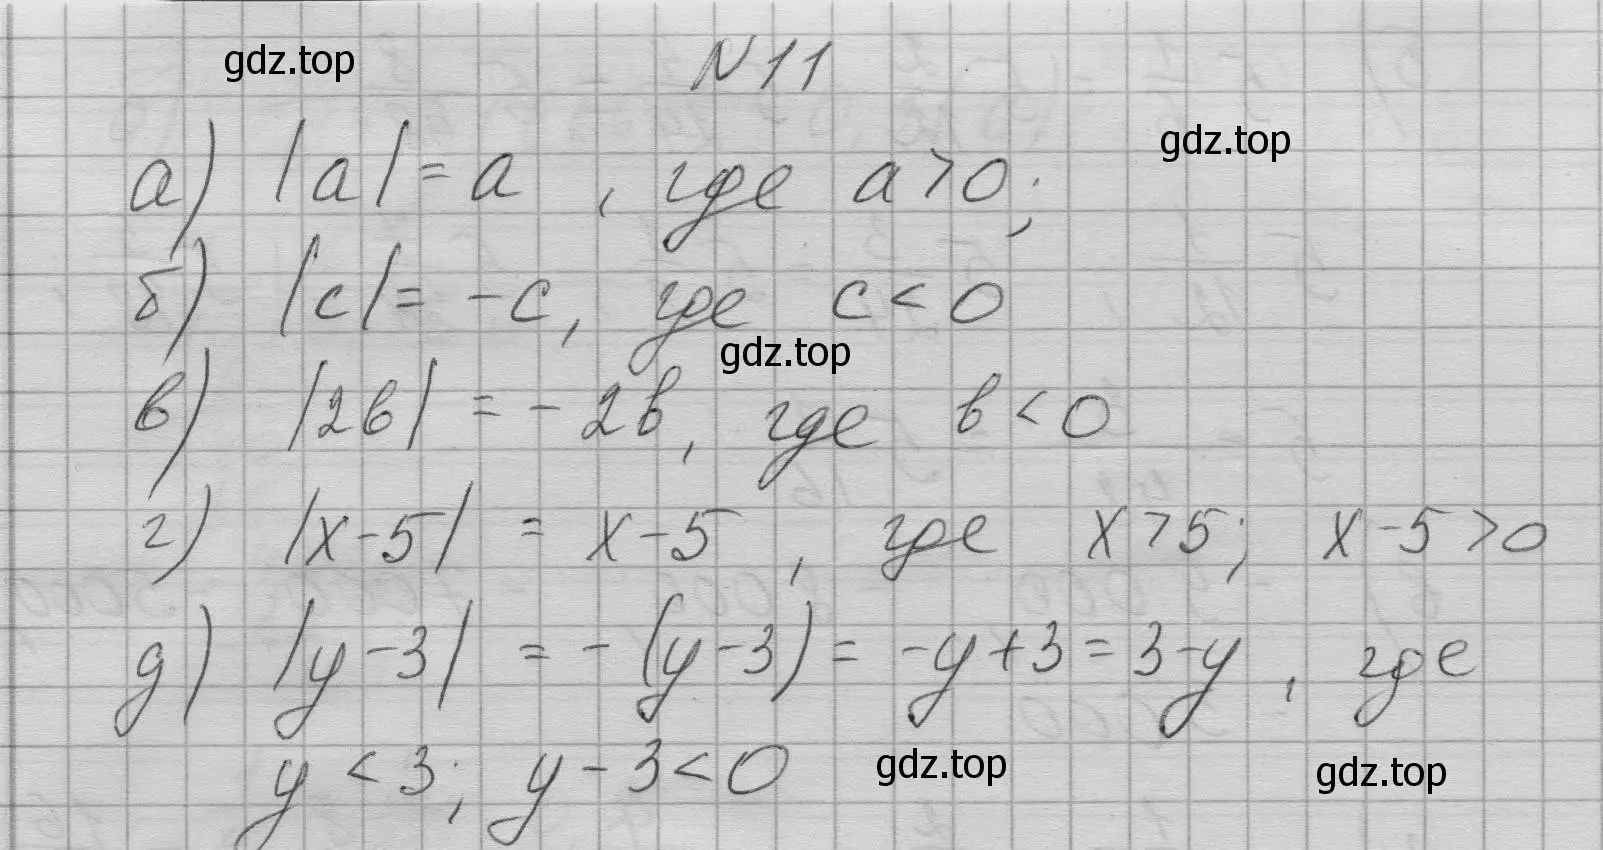 gdz.top
N 11
gdz.top
а) |a| = a , где a > 0;
б) |c| = -c, где c < 0
gdz.top
в) |2b| = -2b, где b < 0
г) |x-5| = x-5 , где x > 5; x-5 > 0
д) |y-3| = -(y-3) = -y+3 = 3-y , где
y < 3; y-3 < 0
gdz.top
gdz.top